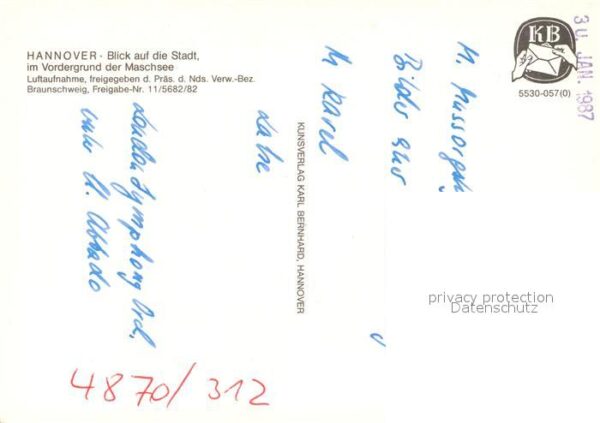 HANNOVER · Blick auf die Stadt,
im Vordergrund der Maschsee
Luftaufnahme, freigegeben d. Präs. d. Nds. Verw.-Bez.
Braunschweig, Freigabe-Nr. 11/5682/82
KB
5530-057(0)
30. JAN. 1987
M. Mussorgs
Bilder einer
M Ravel
La
London Symphony Orch.
unter C. Abbado
KUNSVERLAG KARL BERNHARD, HANNOVER
privacy protection
Datenschutz
4870/312